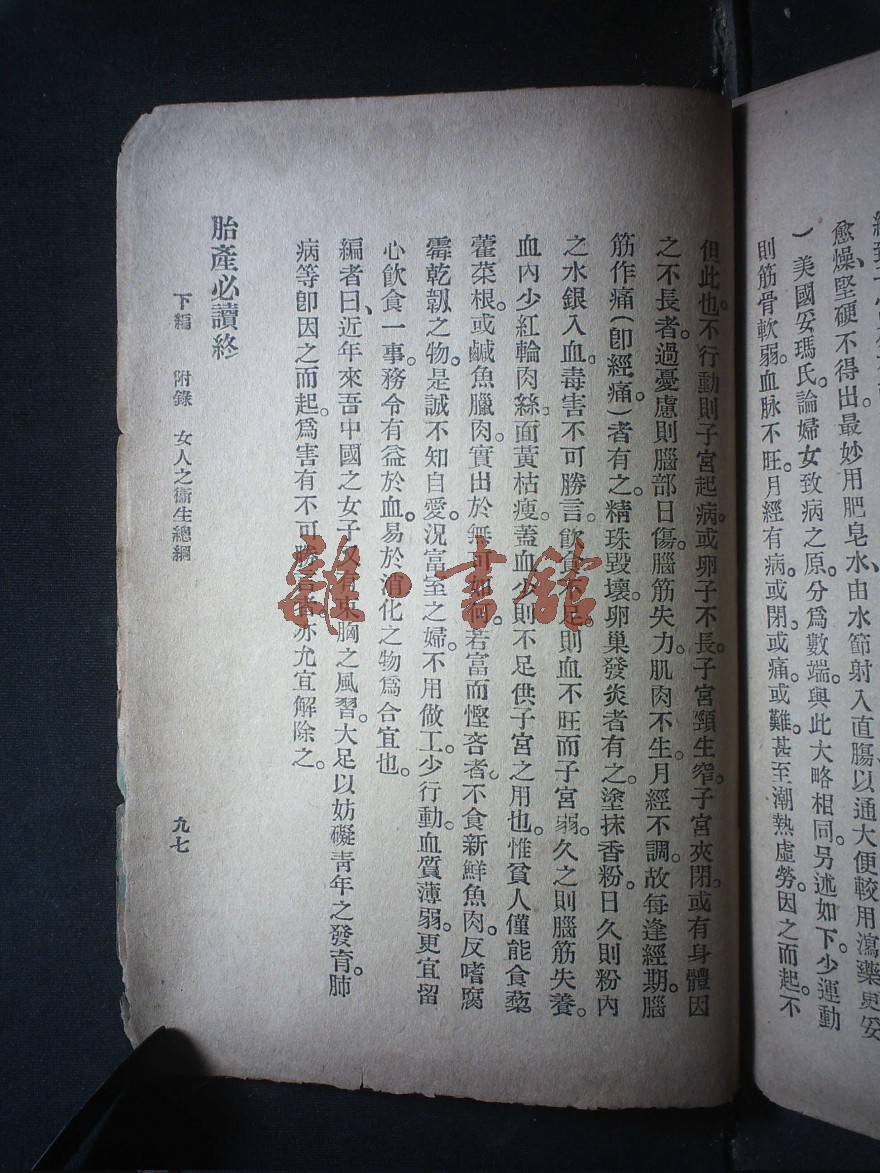 愈燥、堅硬不得出。最妙用肥皂水、由水節射入直腸、以通大便、較用瀉藥更妥
)美國妥瑪氏。論婦女致病之原。分爲數端。與此大略相同。另述如下。少運動
則筋骨軟弱。血脉不旺。月經有病。或閉。或痛。或難。甚至潮熱虛勞。因之而起。不
但此也。不行動則子宮起病。或卵子不長。子宮頸生窄。子宮夾閉。或有身體因
之不長者。過憂慮則腦部日傷。腦筋失力。肌肉不生。月經不調。故每逢經期。腦
筋作痛(卽經痛)者有之。精珠毀壞。卵巢發炎者有之。塗抹香粉。日久則粉內
之水銀入血。毒害不可勝言。飲食不足。則血不旺而子宮弱。久之則腦筋失養。
血內少紅輪肉絲。面黃枯瘦。蓋血少則不足供子宮之用也。惟貧人僅能食藜
藿菜根。或鹹魚臘肉。實出於無可如何。若富而慳吝者。不食新鮮魚肉。反嗜腐
霉乾韌之物。是誠不知自愛。況富室之婦。不用做工。少行動。血質薄弱。更宜留
心飲食一事。務令有益於血。易於消化之物爲合宜也。
編者曰、近年來吾中國之女子、又有束胸之風習。大足以妨礙靑年之發育。肺
病等卽因之而起。爲害有不可勝言者。亦允宜解除之。
胎產必讀終
下編 附錄 女人之衞生總綱
九七
雜·書館